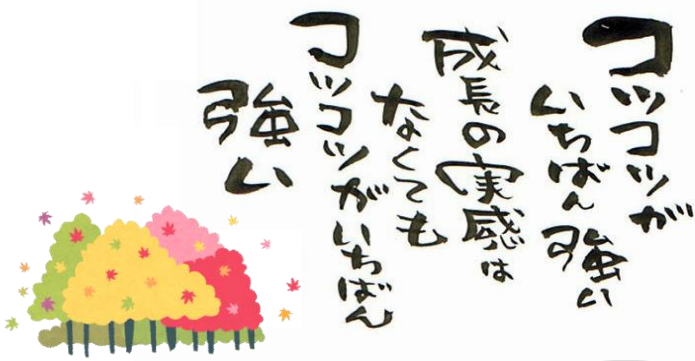 コツコツが
いちばん強い
成長の実感は
なくても
コツコツがいちばん
強い